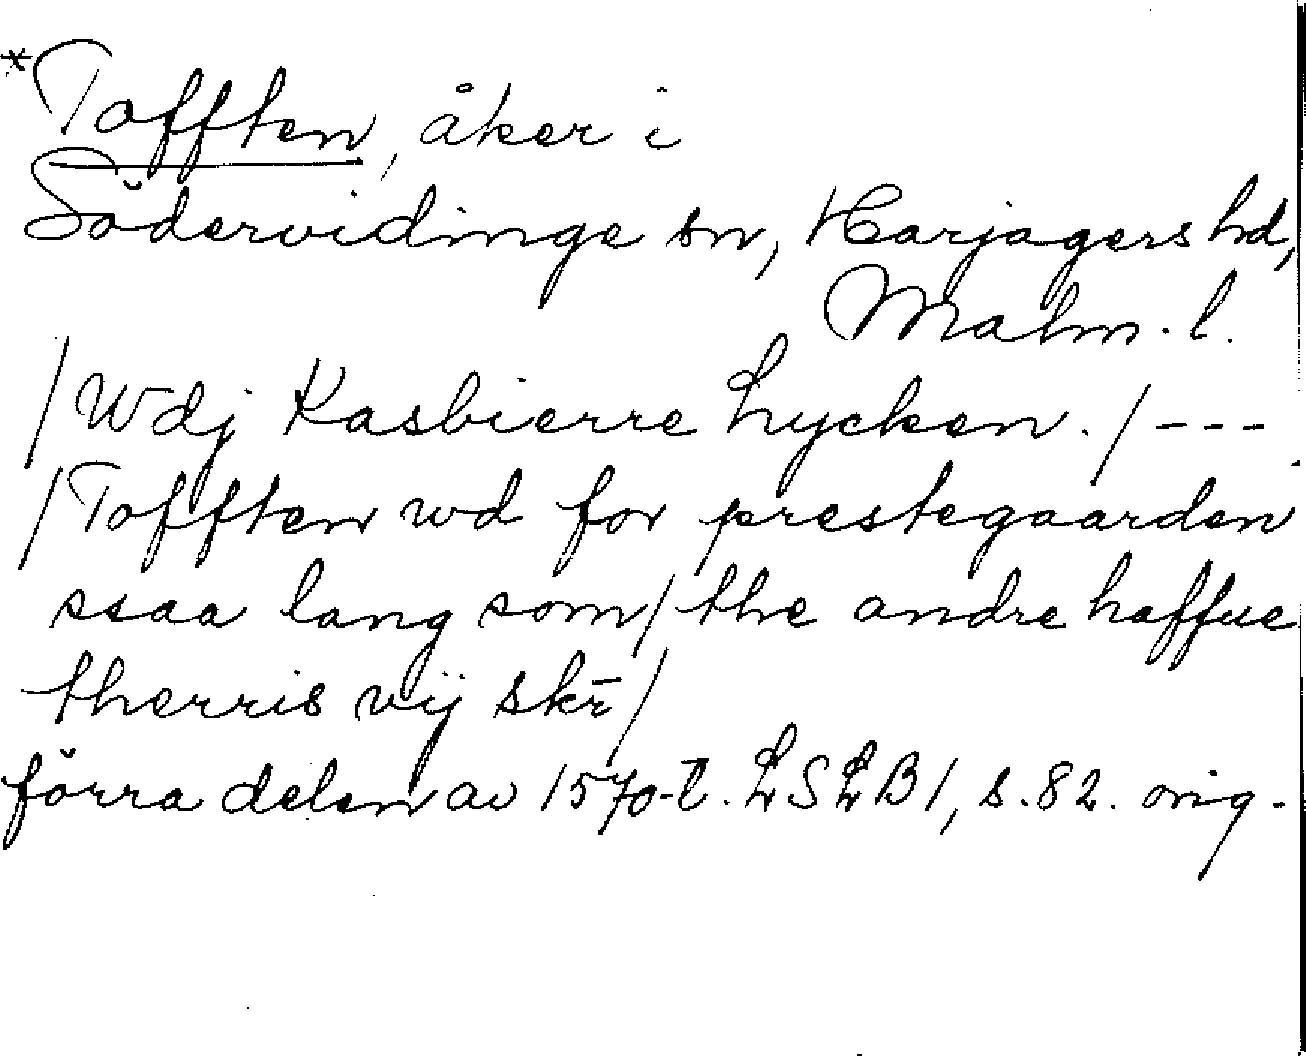 *Tofften, åker i
Södervidinge sn, Harjagers hd,
Malm. l.
/Wdj Kasbierre Lycken./---
/Tofften wd for prestegaarden
ssaa lang som/the andre haffue
therris vij skr/
förra delen av 1570-t. LSLB1, s.82. orig.